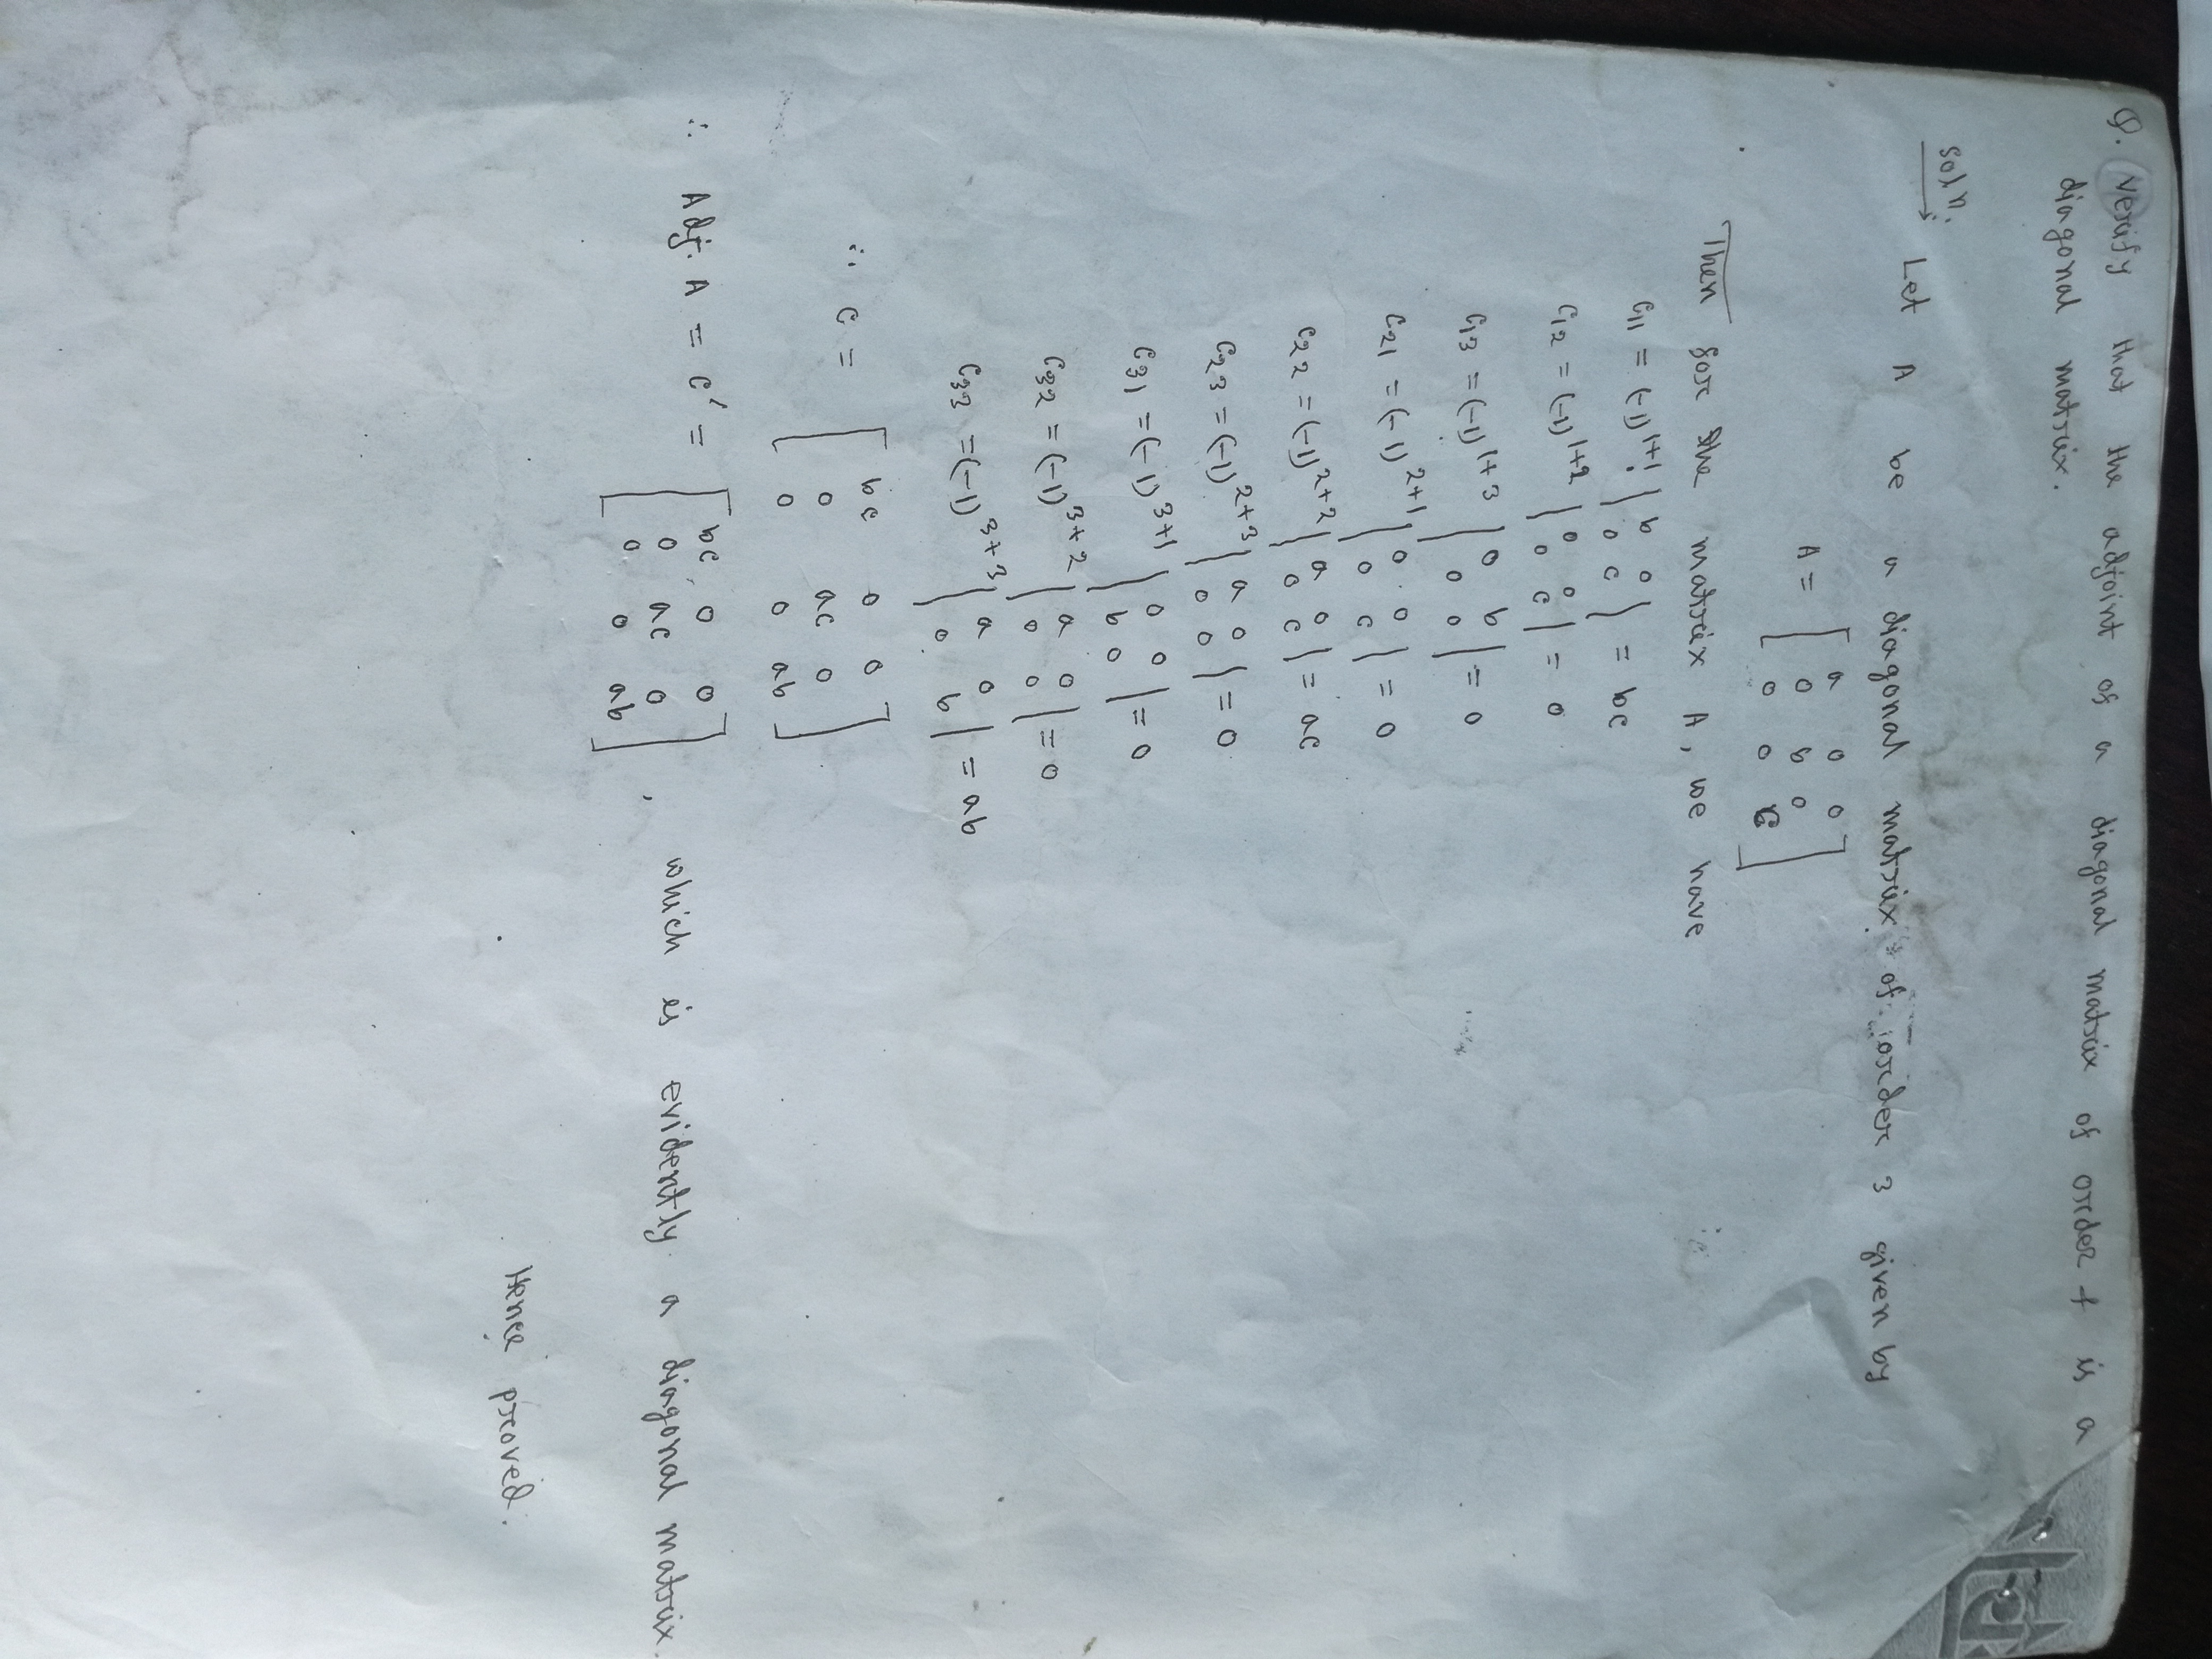 Q. Verify that the adjoint of a diagonal matrix of order f is a
diagonal matrix.
Soln.
Let A be a diagonal matrix of order 3 given by
A = [ a 0 0
0 b 0
0 0 c ]
Then for the matrix A, we have
C11 = (-1)^1+1 | b 0
0 c | = bc
C12 = (-1)^1+2 | 0 0
0 c | = 0
C13 = (-1)^1+3 | 0 b
0 0 | = 0
C21 = (-1)^2+1 | 0 0
0 c | = 0
C22 = (-1)^2+2 | a 0
0 c | = ac
C23 = (-1)^2+3 | a 0
0 0 | = 0
C31 = (-1)^3+1 | 0 0
b 0 | = 0
C32 = (-1)^3+2 | a 0
0 0 | = 0
C33 = (-1)^3+3 | a 0
0 b | = ab
∴ C = [ bc 0 0
0 ac 0
0 0 ab ]
∴ Adj. A = C′ = [ bc, 0 0
0 ac 0
0 0 ab ] , which is evidently a diagonal matrix.
Hence proved.